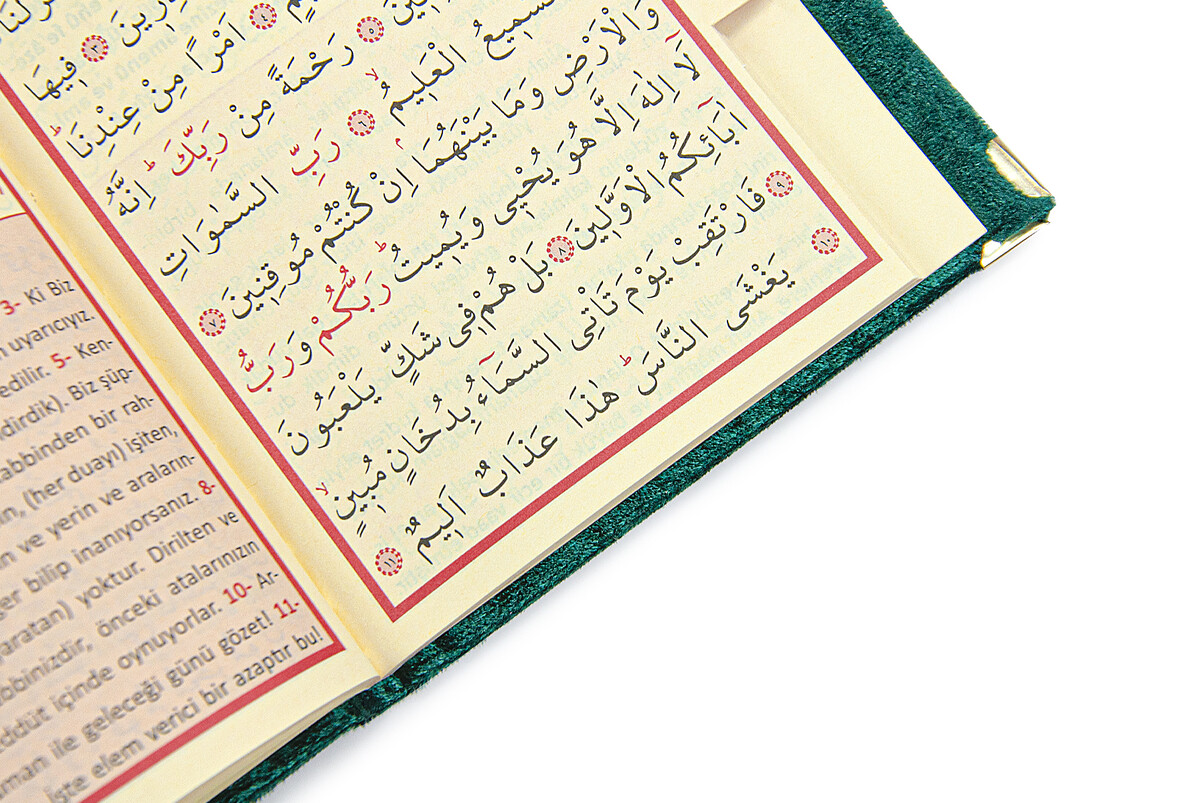 ٣ فِيهَا
٤ اَمْرًا مِنْ عِنْدِنَاۜ
٥ رَحْمَةً مِنْ رَبِّكَۜ اِنَّهُ
السَّمِيعُ الْعَلِيمُۙ ٦ رَبِّ السَّمٰوَاتِ
وَالْاَرْضِ وَمَا بَيْنَهُمَاۢ اِنْ كُنْتُمْ مُوقِنِينَ ٧
لَٓا اِلٰهَ اِلَّا هُوَ يُحْيٖى وَيُمِيتُۜ رَبُّكُمْ وَرَبُّ
اٰبَٓائِكُمُ الْاَوَّلِينَ ٨ بَلْ هُمْ فِى شَكٍّ يَلْعَبُونَ
٩ فَارْتَقِبْ يَوْمَ تَأْتِى السَّمَٓاءُ بِدُخَانٍ مُبِينٍۙ
١٠ يَغْشَى النَّاسَۜ هٰذَا عَذَابٌ اَلِيمٌ ١١
3- Ki Biz
uyarıcıyız.
edilir. 5- Ken-
dirdik). Biz şüp-
abbinden bir rah-
(her duayı) işiten,
ve yerin ve araların-
ğer bilip inanıyorsanız. 8-
yaratan) yoktur. Dirilten ve
bbinizdir, önceki atalarınızın
ddüt içinde oynuyorlar. 10- Ar-
man ile geleceği günü gözet! 11-
İşte elem verici bir azaptır bu!